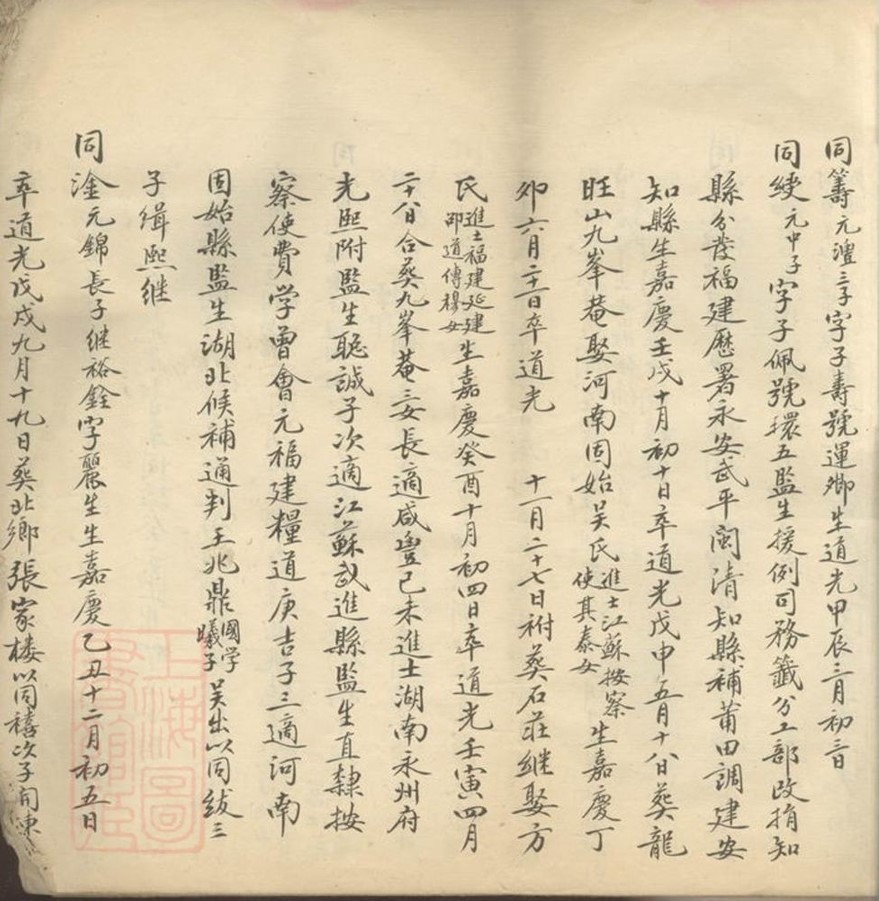 同籌元澧三子字子壽號運卿生道光甲辰三月初三日
同綬元中子字子佩號環五監生援例司務籤分工部改捐知
縣分發福建歷署永安武平閩清知縣補莆田調建安
知縣生嘉慶壬戌十月初十日卒道光戊申五月十八日葬龍
旺山九峯菴娶河南固始吳氏進士江蘇按察使其泰女生嘉慶丁
卯六月二十一日卒道光 十一月二十七日祔葬石莊継娶方
氏進士福建延建邵道傳穆女生嘉慶癸酉十月初四日卒道光壬寅四月
二十八日合葬九峯菴三女長適咸豐己未進士湖南永州府
光熙附監生聡誠子次適江蘇武進縣監生直隸按
察使費学曽會元福建糧道庚吉子三適河南
固始縣監生湖北候補通判王兆鼎國学曦子吳出以同紱三
子緝熙継
同淦元錦長子継裕銓字麗生生嘉慶乙丑十二月初五日
卒道光戊戌九月十九日葬北鄉張家楼以同禧次子
上海圖書館藏